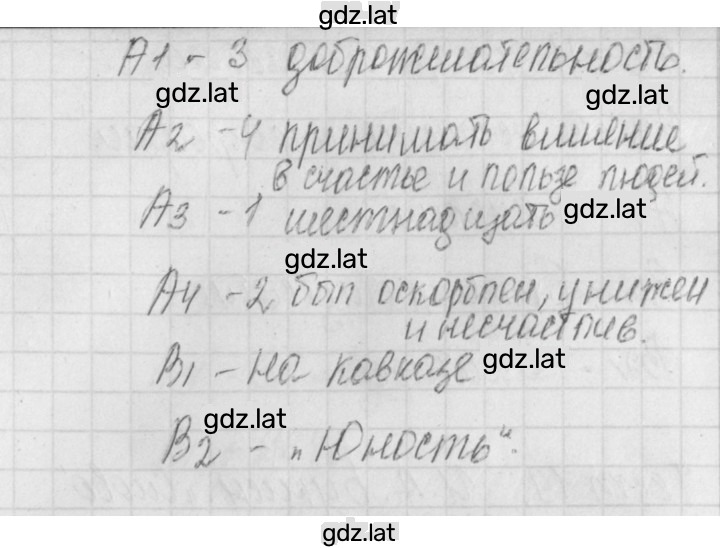 gdz.lat
А1 - 3 доброжелательность.
gdz.lat gdz.lat
А2 - 4 принимать влияние
в счастье и пользе людей.
А3 - 1 шестнадцать gdz.lat
gdz.lat
А4 - 2 был оскорблен, унижен
и несчастлив.
В1 - На кавказе gdz.lat
gdz.lat
В2 - „Юность“.
gdz.lat